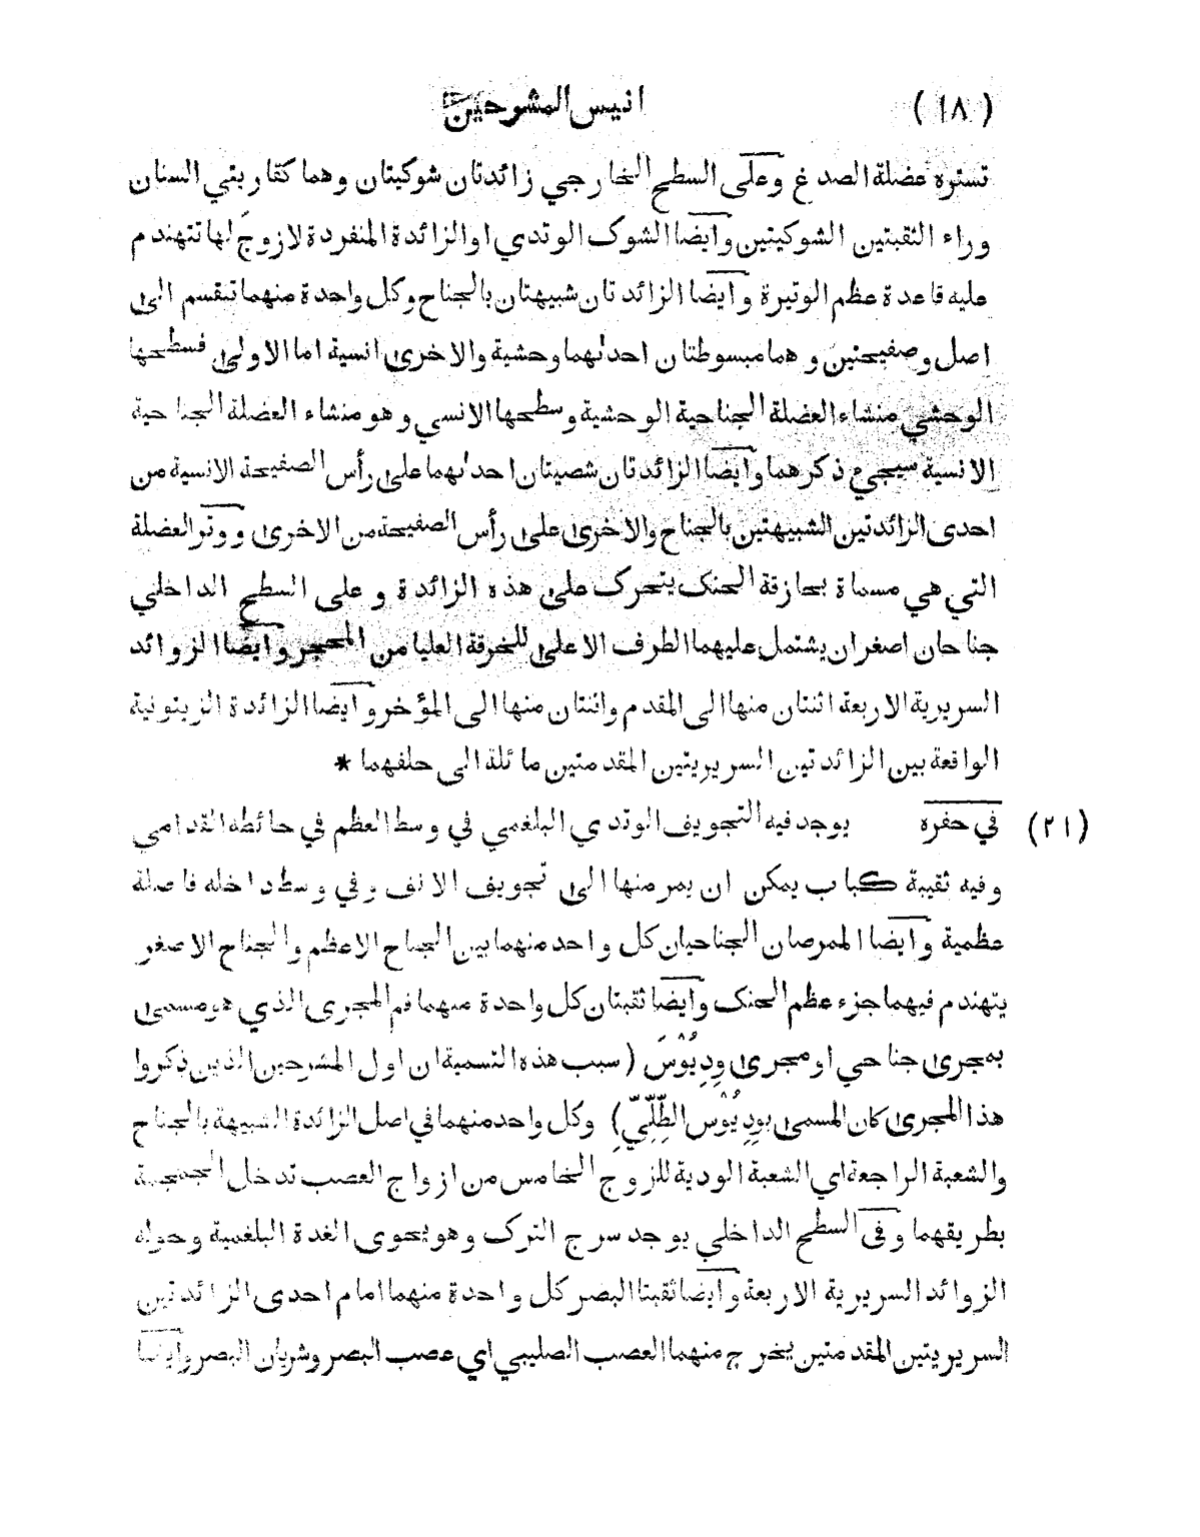 (١٨) انيس المشرحين
تستره عضلة الصدغ وعلى السطح الخارجي زائدتان شوكيتان وهما كقاربتي السنان
وراء الثقبتين الشوكيتين وايضا الشوك الوتدي او الزائدة المنفردة لا زوجَ لها تتهندم
عليه قاعدة عظم الوتيرة وايضا الزائدتان شبيهتان بالجناح وكل واحدة منهما تنقسم الى
اصل وصفيحتين وهما مبسوطتان احدٰىهما وحشية والاخرى انسية اما الاولى فسطحها
الوحشي منشاء العضلة الجناحية الوحشية وسطحها الانسي وهو منشاء العضلة الجناحية
الانسية سيجيء ذكرهما وايضا الزائدتان شصيتان احدٰىهما على رأس الصفيحة الانسية من
احدى الزائدتين الشبيهتين بالجناح والاخرى على رأس الصفيحة من الاخرى ووتر العضلة
التي هي مسماة بحازقة الحنك يتحرك على هذه الزائدة وعلى السطح الداخلي
جناحان اصغران يشتمل عليهما الطرف الاعلى للخرقة العليا من المحجر وايضا الزوائد
السريرية الاربعة اثنتان منها الى المقدم واثنتان منها الى المؤخر وايضا الزائدة الزيتونية
الواقعة بين الزائدتين السريريتين المقدمتين مائلة الى حلفهما *
(٢١) في حفره يوجد فيه التجويف الوتدي البلغمي في وسط العظم في حائطه القدامي
وفيه ثقيبة كباب يمكن ان يمر منها الى تجويف الانف وفي وسط داخله فاصلة
عظمية وايضا الممرصان الجناحيان كل واحد منهما بين الجناح الاعظم والجناح الاصغر
يتهندم فيهما جزء عظم الحنك وايضا ثقبتان كل واحدة منهما فم المجرى الذي هو مسمى
بمجرى جناحي او مجرى وِدِيُوْسَ (سبب هذه التسمية ان اول المشرحين الذين ذكروا
هذا المجرى كان المسمى بوِدِيُوْس الطِّلِّيِّ) وكل واحد منهما في اصل الزائدة الشبيهة بالجناح
والشعبة الراجعة اي الشعبة الودية للزوج الخامس من ازواج العصب تدخل الجمجمة
بطريقهما وفى السطح الداخلي يوجد سرج الترك وهو يحوى الغدة البلغمية وحوله
الزوائد السريرية الاربعة وايضا ثقبتا البصر كل واحدة منهما امام احدى الزائدتين
السريريتين المقدمتين يخرج منهما العصب الصليبي اي عصب البصر وشريان البصر وايضا